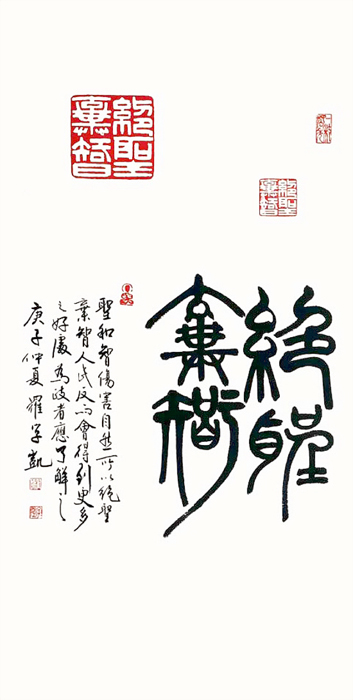 絕聖
棄智
絕聖
棄智
絕聖
棄智
聖和智傷害自然所以絕聖
棄智人民反而會得到更多
之好處為政者應了解之
庚子仲夏羅学凱